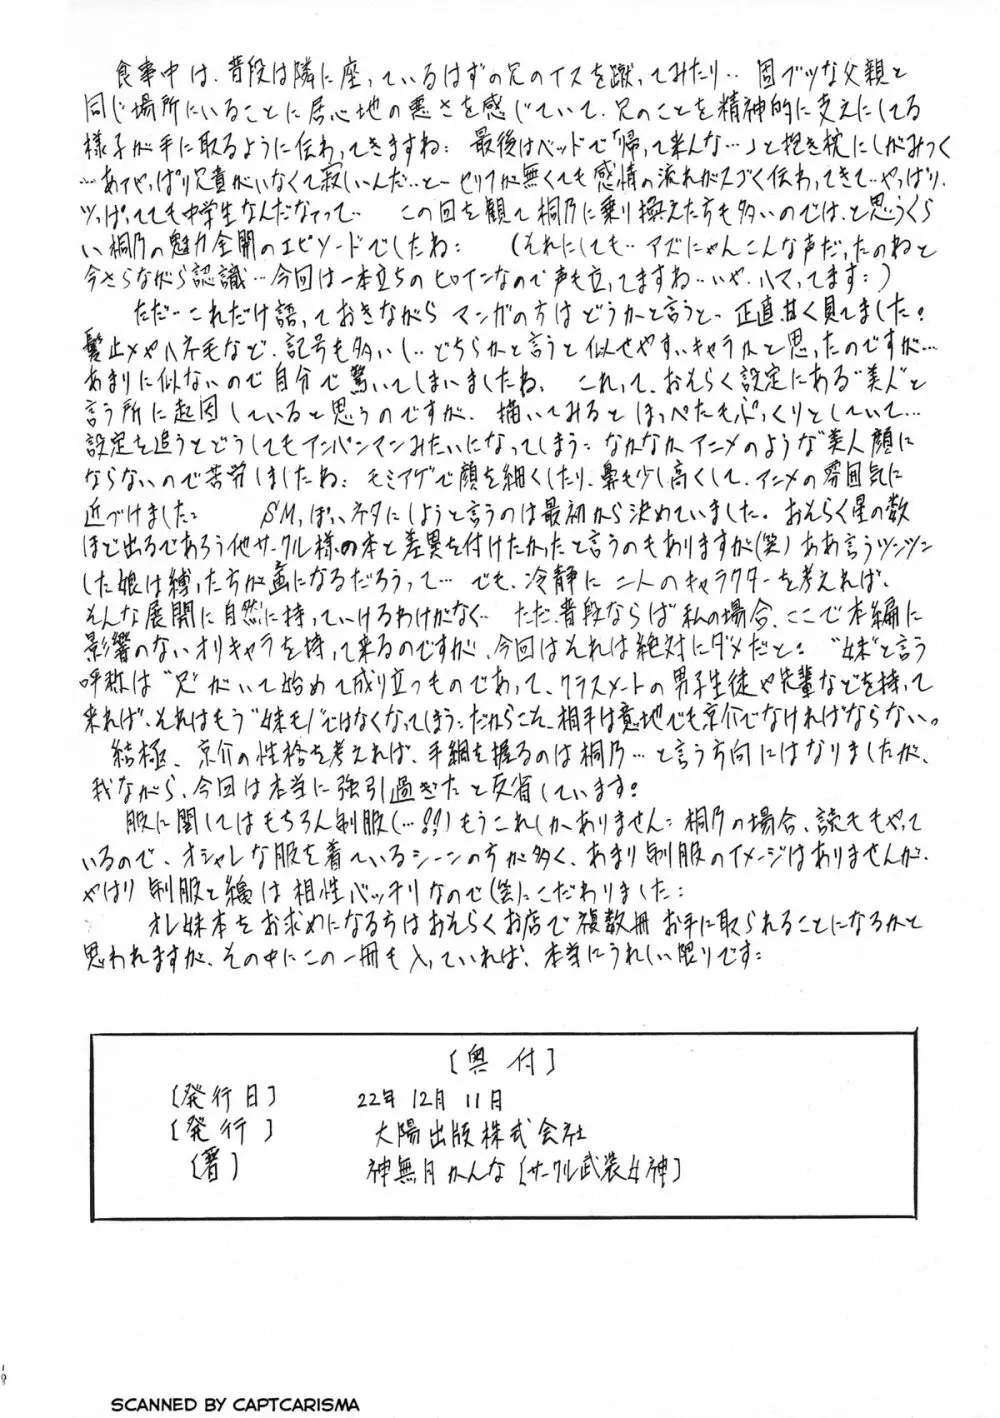 食事中は、普段は隣に座っているはずの兄のイスを蹴ってみたり‥固ブツな父親と
同じ場所にいることに居心地の悪さを感じていて、兄のことを精神的に支えにしてる
様子が手に取るように伝わってきますね: 最後はベッドで「帰って来んな…」と抱き枕にしがみつく
…あてやっぱり兄貴がいなくて寂しいんだ…とー セリフが無くても感情の流れがスゴく伝わってきて…やっぱり、
ツッぱってても中学生なんだなァって… この回を観て桐乃に乗り換えた方も多いのでは、と思うくら
い桐乃の魅力全開のエピソードでしたね: (それにしても‥アズにゃんこんな声だったのねと
今さらながら認識…今回は一本立ちのヒロインなので声も立ってますね‥いや、ハマってます:)
ただーこれだけ語っておきながら マンガの方はどうかと言うと、正直、甘く見てました:
髪止メやハネ毛など、記号も多いし‥どちらかと言うと似せやすいキャラかと思ったのですが…
あまりに似ないので自分で驚いてしまいましたね、 これって、おそらく設定にある"美人"と
言う所に起因していると思うのですが、描いてみるとほっぺたもぷっくりとしていて…
設定を追うとどうしてもアンパンマンみたいになってしまう: なかなかアニメのような"美人顔に
ならないので苦労しましたね: モミアゲで顔を細くしたり、鼻も少し高くして、アニメの雰囲気に
近づけました: SMっぽいネタにしようと言うのは最初から決めていました。おそらく星の数
ほど出るであろう他サークル様の本と差異を付けたかったと言うのもありますが(笑)ああ言うツンツン
した娘は縛った方が画になるだろうって… でも、冷静に二人のキャラクターを考えれば、
そんな展開に自然に持っていけるわけがなく‥ ただ、普段ならば私の場合、ここで本編に
影響のないオリキャラを持って来るのですが、今回はそれは絶対にダメだと: "妹"と言う
呼称は"兄"がいて始めて成り立つものであって、クラスメートの男子生徒や先輩などを持って
来れば、それはもう"妹モノ"ではなくなってしまう: だからこそ、相手は意地でも京介でなければならない。
結極、京介の性格を考えれば、手綱を握るのは桐乃…と言う方向にはなりましたが、
我ながら、今回は本当に強引過ぎたと反省しています:
服に関してはもちろん制服(…!!)もうこれしかありません: 桐乃の場合、読モもやって
いるので、オシャレな服を着ているシーンの方が多く、あまり制服のイメージはありませんが、
やはり制服と縄は相性バッチリなので(笑)こだわりました:
オレ妹本をお求めになる方はおそらくお店で複数冊お手に取られることになるかと
思われますが、その中にこの一冊も入っていれば、本当にうれしい限りです:
[奥付]
[発行日] 22年12月11日
[発行] 大陽出版株式会社
[著] 神無月かんな[サークル武装女神]
SCANNED BY CAPTCARISMA